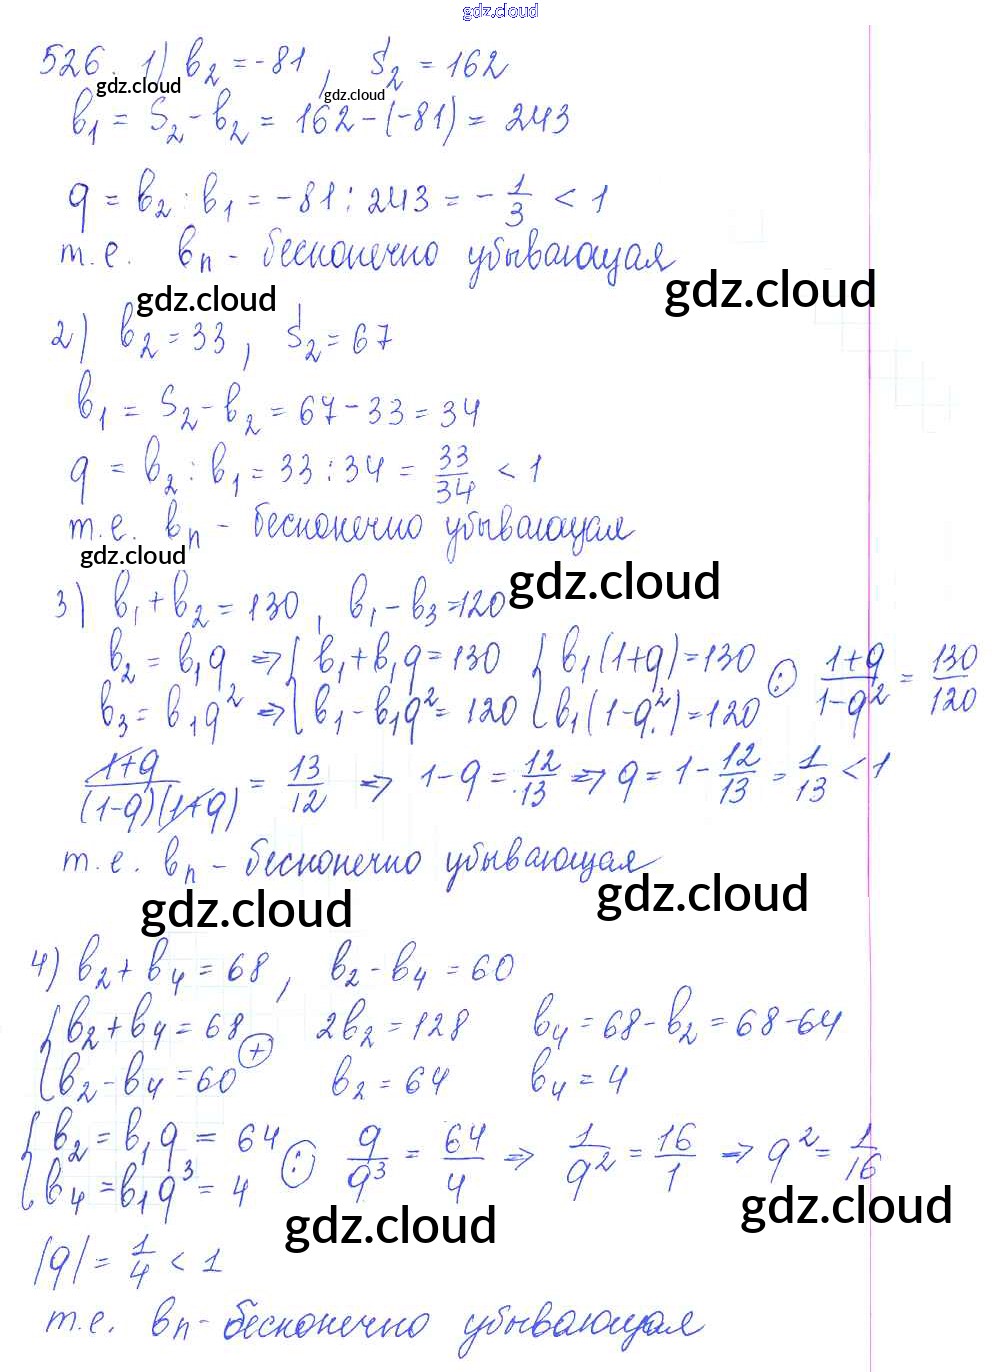 gdz.cloud
526. 1) b₂ = -81, S₂ = 162
gdz.cloud gdz.cloud
b₁ = S₂ - b₂ = 162 - (-81) = 243
q = b₂ : b₁ = -81 : 243 = - 1/3 < 1
т.е. bₙ - бесконечно убывающая
gdz.cloud
gdz.cloud
2) b₂ = 33, S₂ = 67
b₁ = S₂ - b₂ = 67 - 33 = 34
q = b₂ : b₁ = 33 : 34 = 33/34 < 1
т.е. bₙ - бесконечно убывающая
gdz.cloud
gdz.cloud
3) b₁ + b₂ = 130, b₁ - b₃ = 120
b₂ = b₁q ⇒ { b₁ + b₁q = 130 { b₁(1+q) = 130 (:) (1+q)/(1-q²) = 130/120
b₃ = b₁q² ⇒ { b₁ - b₁q² = 120 { b₁(1-q²) = 120
(1+q)/((1-q)(1+q)) = 13/12 ⇒ 1 - q = 12/13 ⇒ q = 1 - 12/13 = 1/13 < 1
т.е. bₙ - бесконечно убывающая
gdz.cloud
gdz.cloud
4) b₂ + b₄ = 68, b₂ - b₄ = 60
{ b₂ + b₄ = 68 (+) 2b₂ = 128 b₄ = 68 - b₂ = 68 - 64
{ b₂ - b₄ = 60 b₂ = 64 b₄ = 4
{ b₂ = b₁q = 64 (:) q/q³ = 64/4 ⇒ 1/q² = 16/1 ⇒ q² = 1/16
{ b₄ = b₁q³ = 4
gdz.cloud
gdz.cloud
|q| = 1/4 < 1
т.е. bₙ - бесконечно убывающая